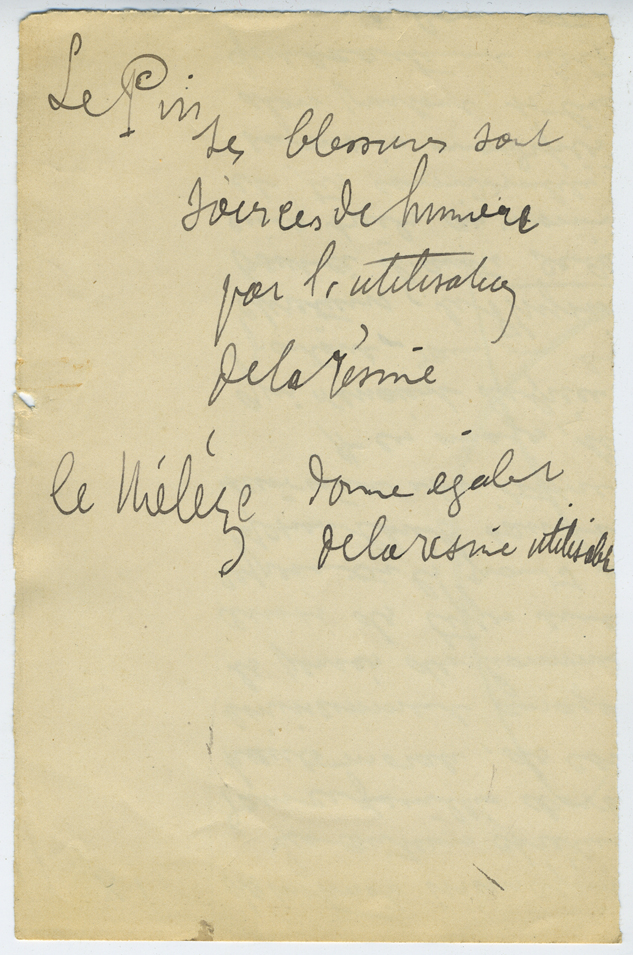 Le Pin
Ses blessures sont
sources de lumière
par l'utilisation
de la résine
le Mélèze donne égalet
de la resine utilisable